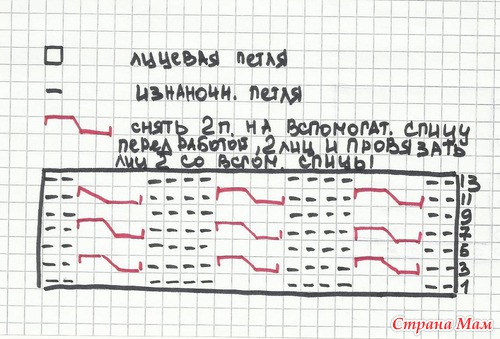 лицевая петля
изнаночн. петля
снять 2 п. на вспомогат. спицу
перед работой, 2 лиц и провязать
лиц 2 со вспом. спицы
13
11
9
7
5
3
1
Страна Мам